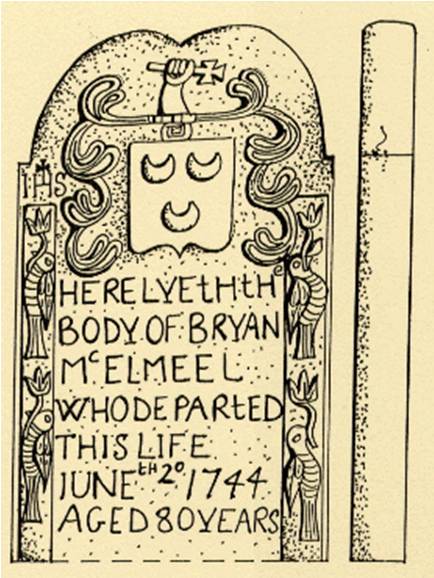 IHS
HERE LYETH THe
BODY OF BRYAN
McELMEEL
WHO DEPARTED
THIS LIFE
JUNEth20 1744
AGED 80 YEARS